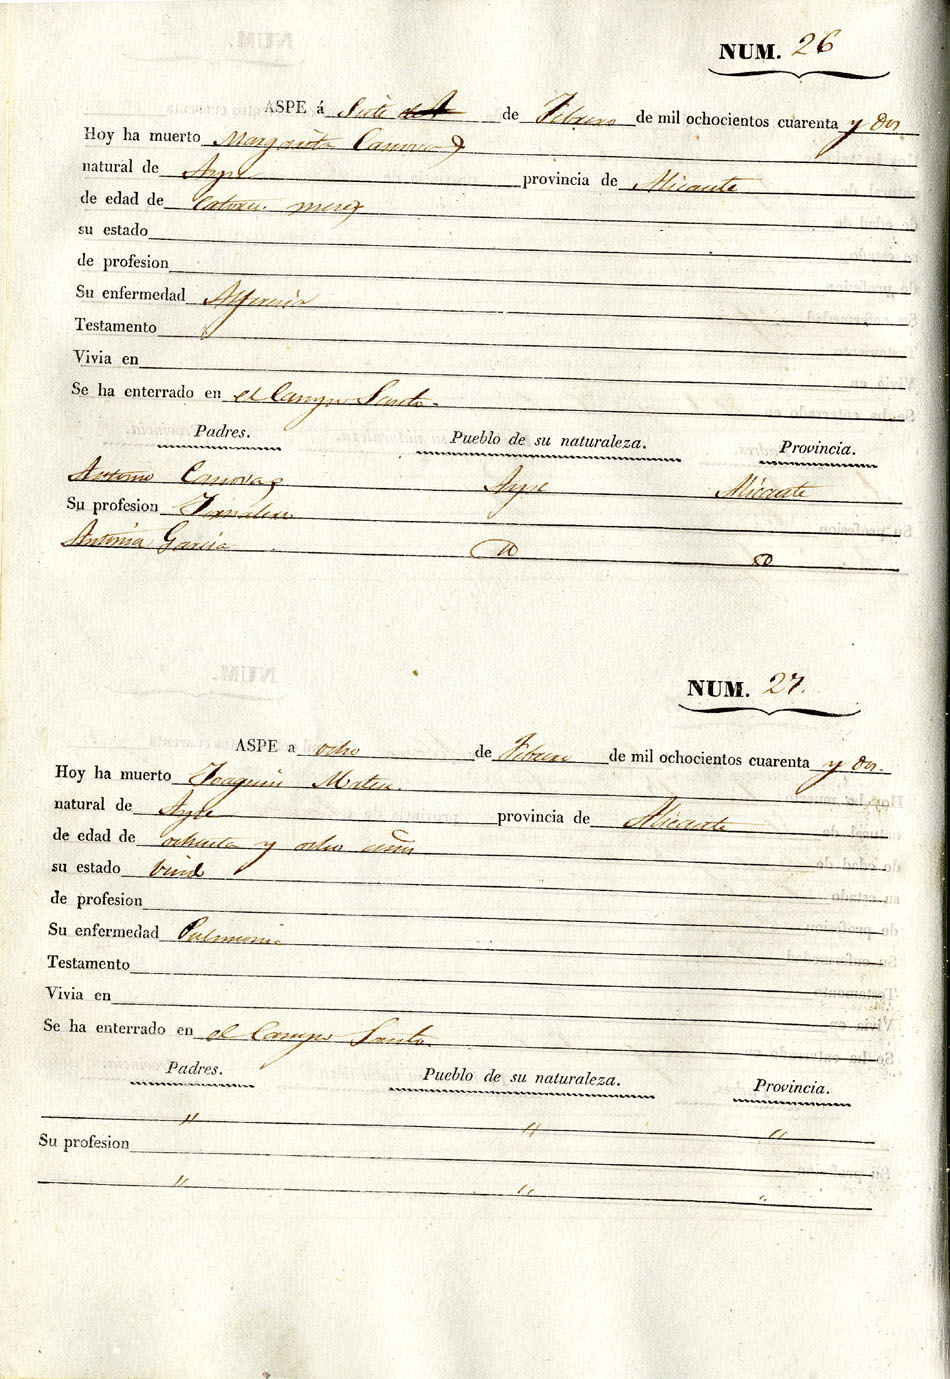 NUM. 26
ASPE á Siete de Febrero de mil ochocientos cuarenta y dos
Hoy ha muerto Margarita Canovas
natural de Aspe provincia de Alicante
de edad de Catorce meses
su estado
de profesion
Su enfermedad
Testamento
Vivia en
Se ha enterrado en el Campo Santo.
Padres. Pueblo de su naturaleza. Provincia.
Antonio Canovas Aspe Alicante
Su profesion Jornalero
Antonia Garcia
NUM. 27.
ASPE a ocho de Febrero de mil ochocientos cuarenta y dos.
Hoy ha muerto Joaquin Mira.
natural de Aspe provincia de Alicante
de edad de ochenta y ocho años
su estado Viud
de profesion
Su enfermedad Pulmonia
Testamento
Vivia en
Se ha enterrado en el Campo Santo.
Padres. Pueblo de su naturaleza. Provincia.
" " "
Su profesion
" " "